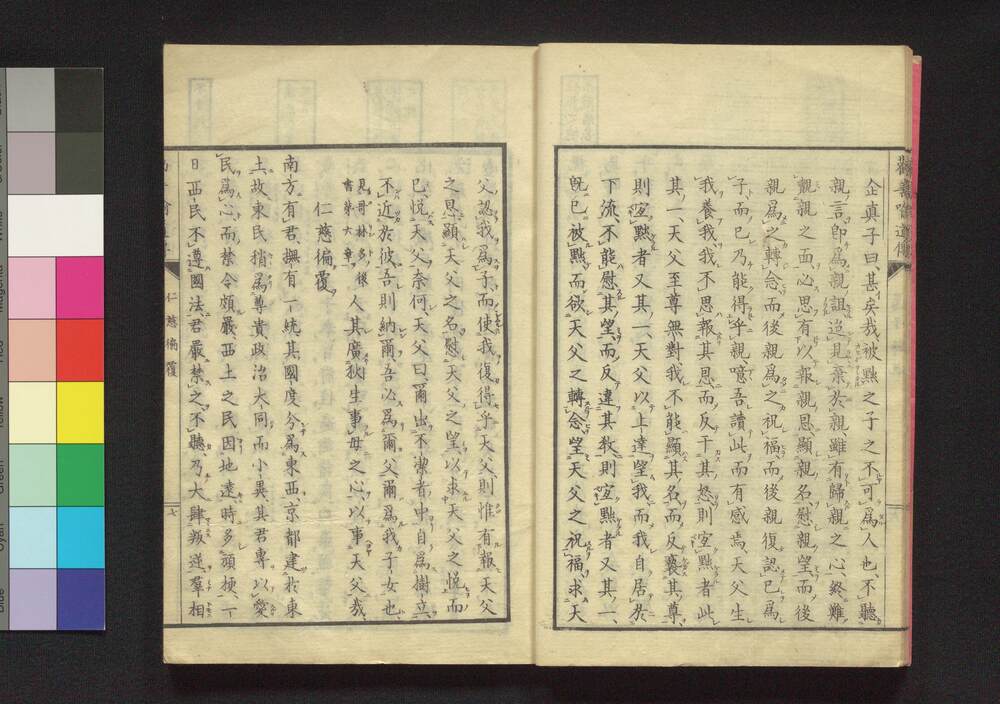 勸善喻道傳
企真子曰甚矣哉被黜之子之不可爲人也不聽
親言卽爲親詛迨見棄於親雖有歸親之心終難
覿親之面心思有以報親恩顯親名慰親望而後
親爲之轉念而後親爲之祝福而後親復認已爲
子而已乃能得乎親噫吾讀此而有感焉天父生
我養我我不思報其恩而反干其怒則宜黜者此
其一天父至尊無對我不能顯其名而反褻其尊
則宜黜者又其一天父以上達望我而我自居於
下流不能慰其望而反違其教則宜黜者又其一
旣已被黜而欲天父之轉念望天父之祝福求天
父認我爲子而使我復得乎天父則惟有報天父
之恩顯天父之名慰天父之望以求天父之悅而
已悅天父奈何天父曰爾出不潔者中自爲樹立
不近於彼吾則納爾吾以爲爾父爾爲我子女也
見哥林多後書第六章
人其廣狄生事母之心以事天父哉
仁慈徧覆
南方有君撫有一統其國度分爲東西京都建於東
土故東民稍爲尊貴政治大同而小異其君專以愛
民爲心而禁令頗嚴西土之民因地遠時多頑梗一
日西民不遵國法君嚴禁之不聽乃大肆叛逆羣相
仁慈徧覆
七